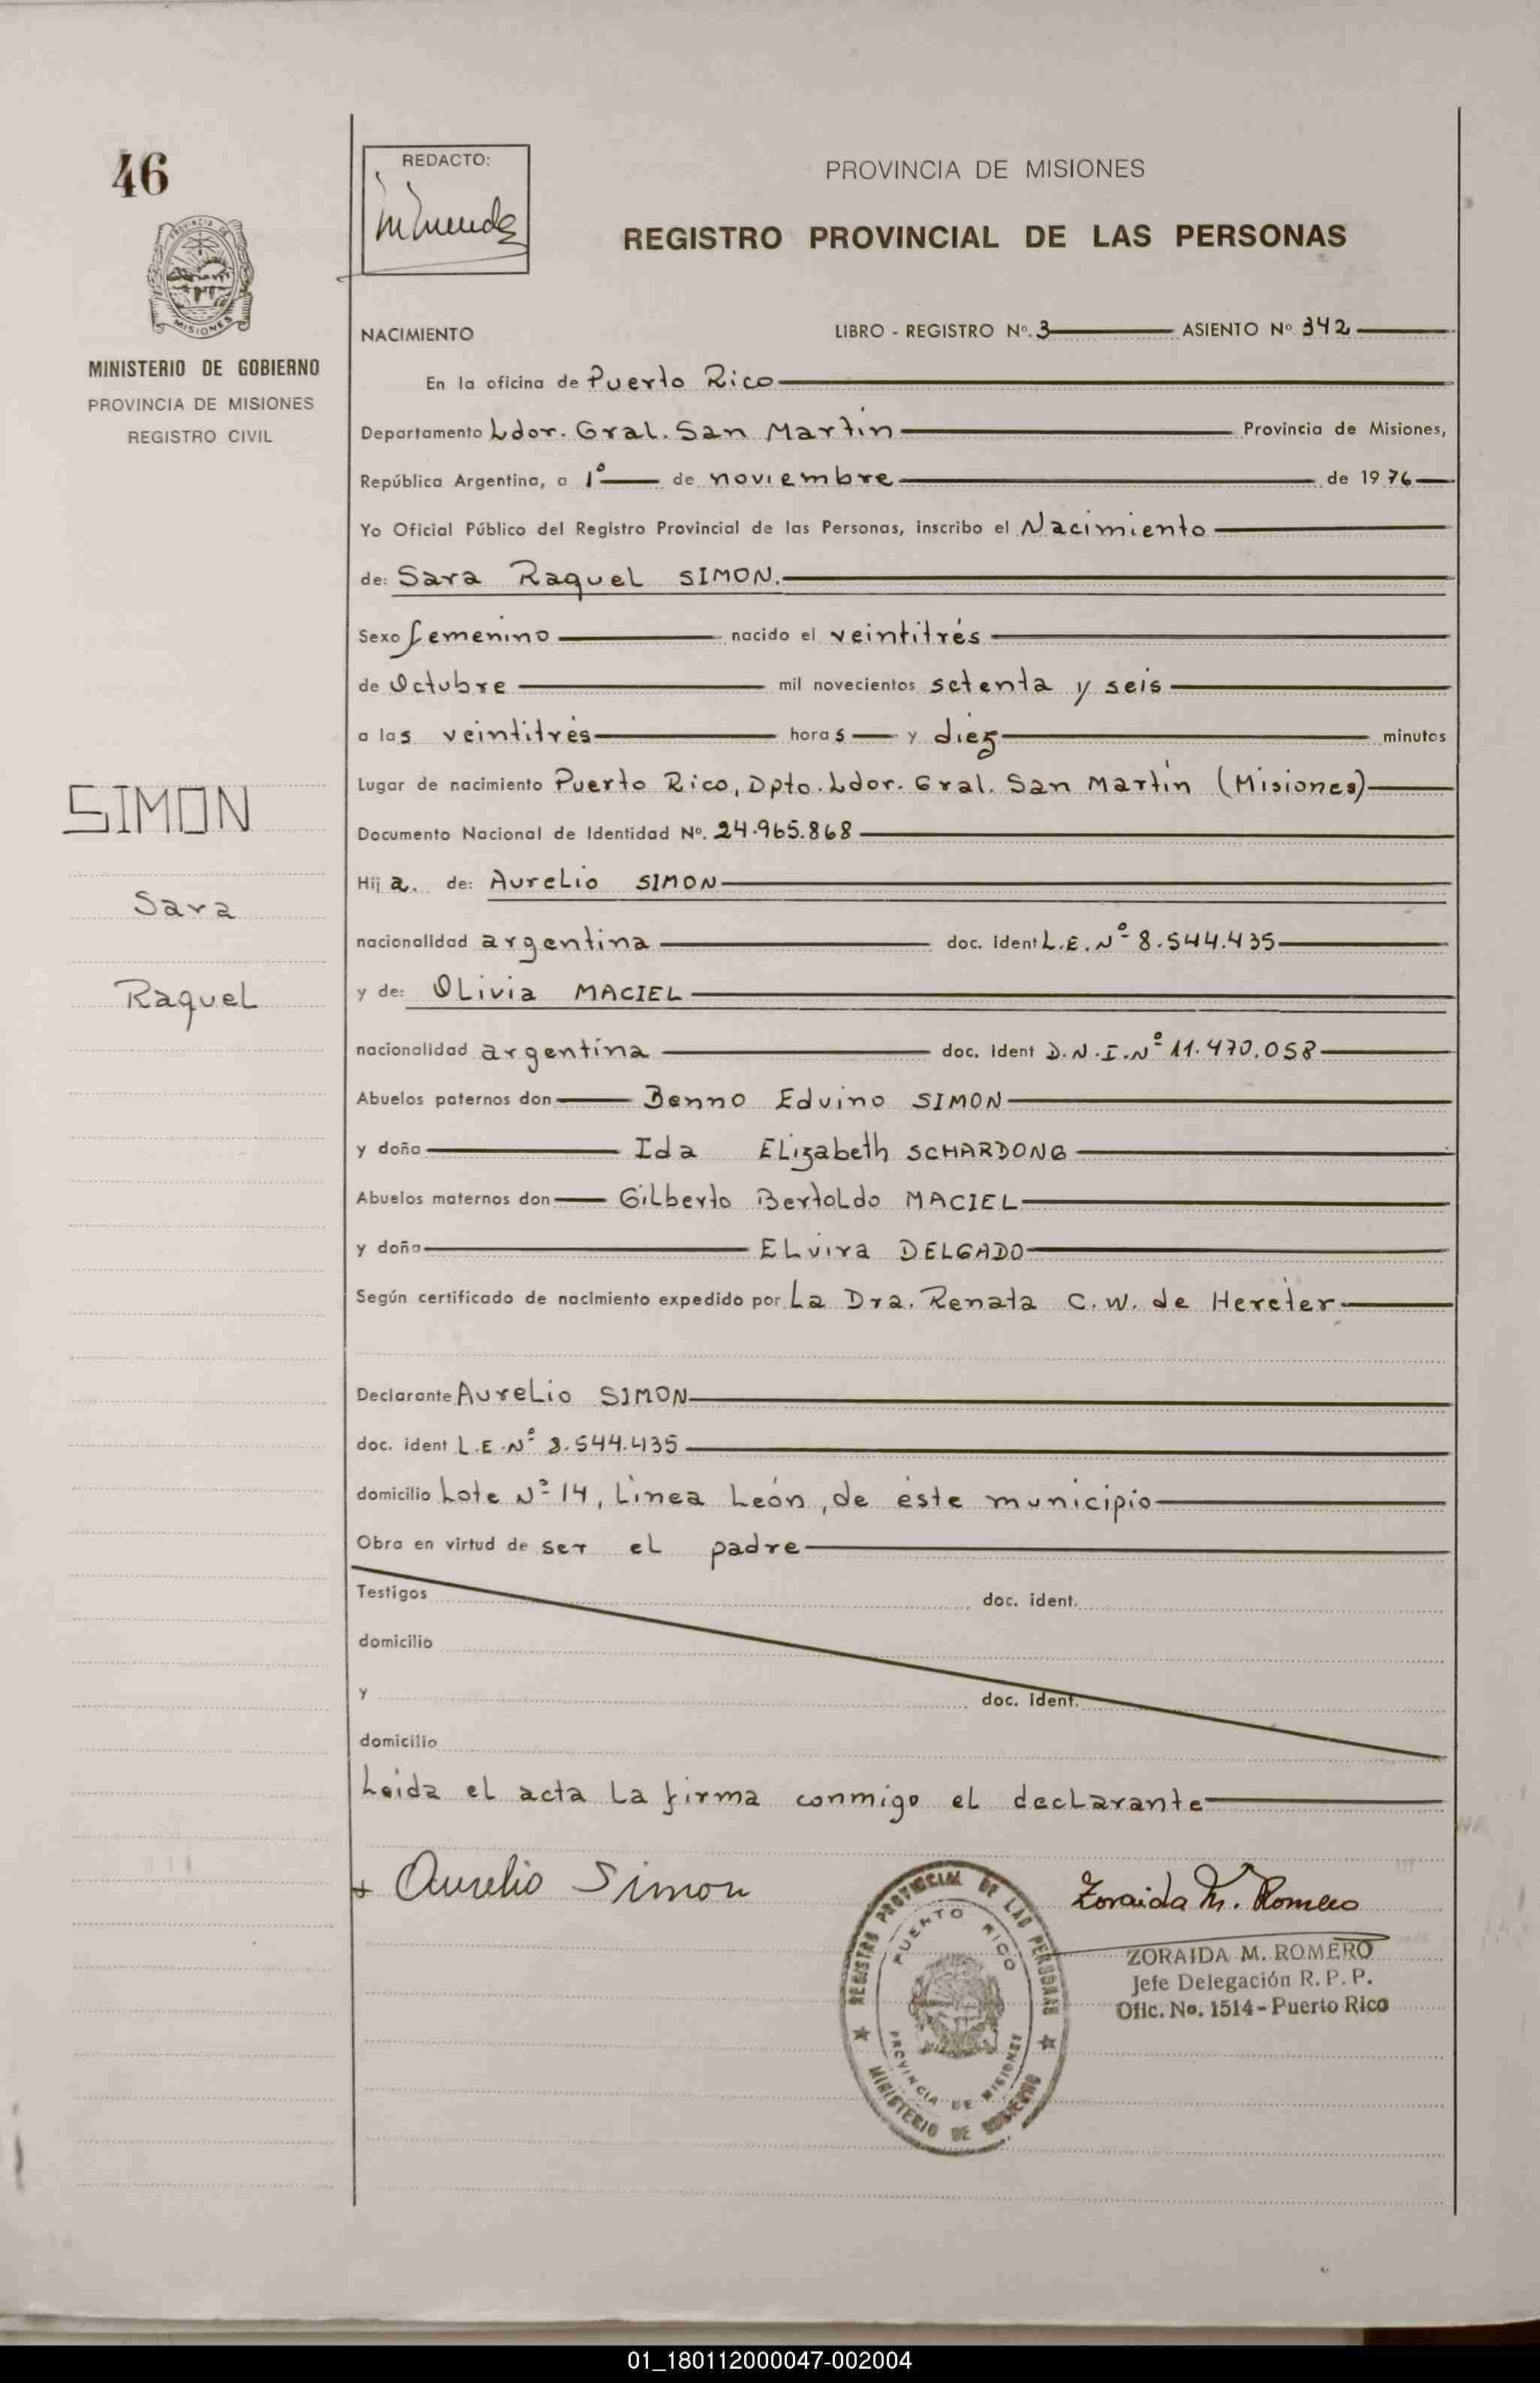 46
PROVINCIA DE MISIONES
MINISTERIO DE GOBIERNO
PROVINCIA DE MISIONES
REGISTRO CIVIL
SIMON
Sara
Raquel
REDACTO:
PROVINCIA DE MISIONES
REGISTRO PROVINCIAL DE LAS PERSONAS
NACIMIENTO LIBRO - REGISTRO Nº. 3 ASIENTO Nº 342
En la oficina de Puerto Rico
Departamento Ldor. Gral. San Martín Provincia de Misiones,
República Argentina, a 1º de noviembre de 1976
Yo Oficial Público del Registro Provincial de las Personas, inscribo el Nacimiento
de: Sara Raquel SIMON.
Sexo femenino nacido el veintitrés
de Octubre mil novecientos setenta y seis
a las veintitrés horas y diez minutos
Lugar de nacimiento Puerto Rico, Dpto. Ldor. Gral. San Martín (Misiones)
Documento Nacional de Identidad Nº. 24.965.868
Hija. de: Aurelio SIMON
nacionalidad argentina doc. ident L.E. Nº 8.544.435
y de: Olivia MACIEL
nacionalidad argentina doc. ident D.N.I. Nº 11.470.058
Abuelos paternos don Benno Eduino SIMON
y doña Ida Elizabeth SCHARDONG
Abuelos maternos don Gilberto Bertoldo MACIEL
y doña Elvira DELGADO
Según certificado de nacimiento expedido por La Dra. Renata C.W. de Hereter
Declarante Aurelio SIMON
doc. ident L.E. Nº 8.544.435
domicilio Lote Nº 14, Línea León, de éste municipio
Obra en virtud de ser el padre
Testigos doc. ident.
domicilio
y doc. ident.
domicilio
Leída el acta la firma conmigo el declarante
+ Aurelio Simon
Zoraida M. Romero
REGISTRO PROVINCIAL DE LAS PERSONAS
PUERTO RICO
PROVINCIA DE MISIONES
MINISTERIO DE GOBIERNO
ZORAIDA M. ROMERO
Jefe Delegación R. P. P.
Ofic. No. 1514 - Puerto Rico
01_180112000047-002004